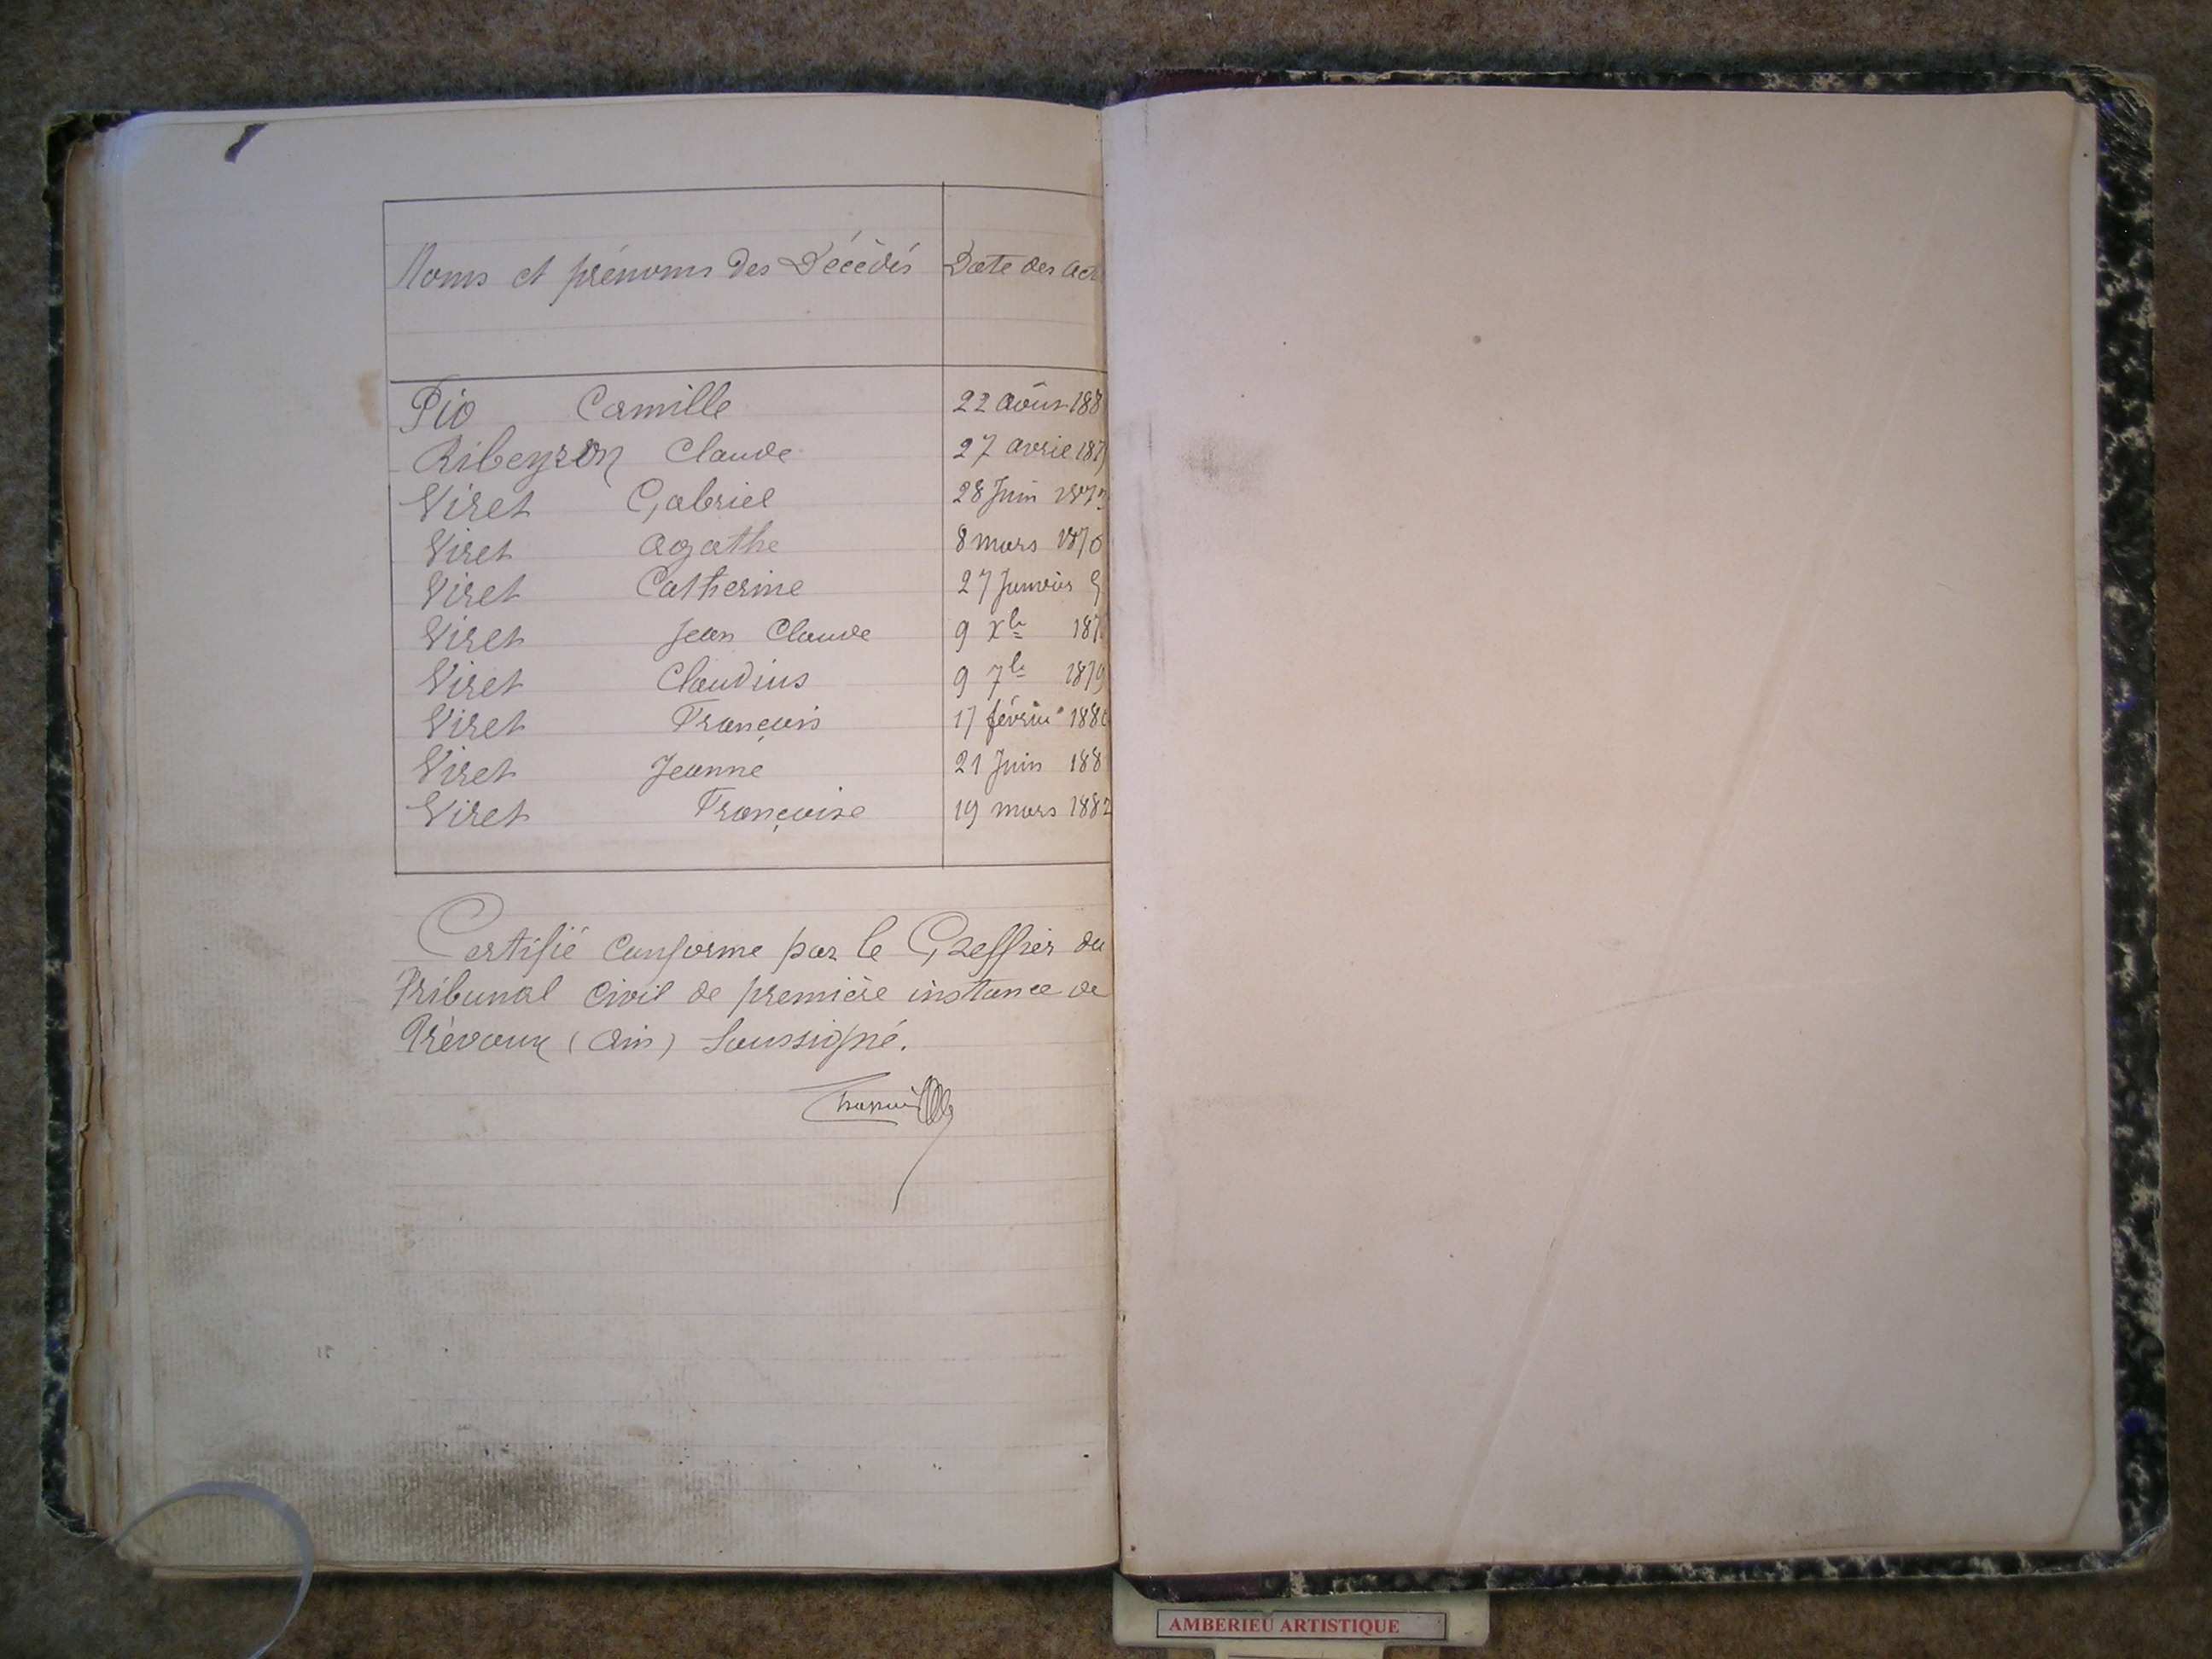 Noms et prénoms des Décédés Date des Act
Pio Camille 22 Août 188
Ribeyron Claude 27 avril 187
Viret Gabriel 28 Juin 187
Viret Agathe 8 mars 1876
Viret Catherine 27 Janvier
Viret Jean Claude 9 Xbre 187
Viret Claudius 9 7bre 1879
Viret François 17 février 188
Viret Jeanne 21 Juin 188
Viret Françoise 19 mars 1882
Certifié Conforme par le Greffier du
Tribunal Civil de première instance de
Trévoux (Ain) Soussigné.
AMBERIEU ARTISTIQUE